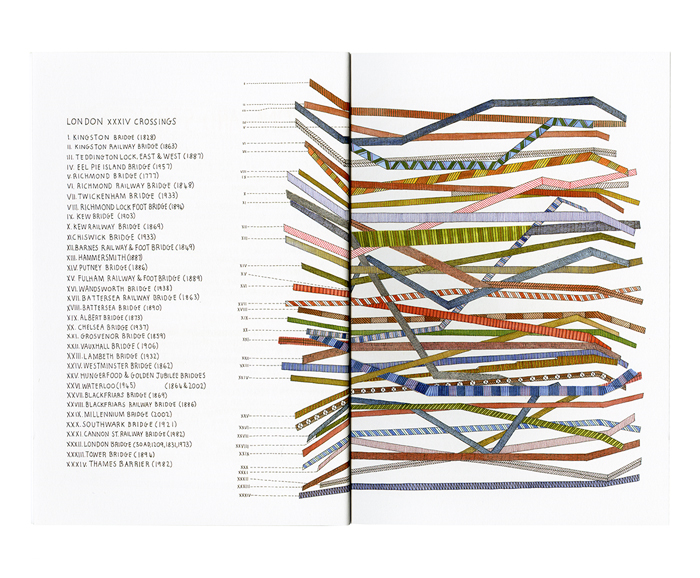 LONDON XXXIV CROSSINGS
I. KINGSTON BRIDGE (1828)
II. KINGSTON RAILWAY BRIDGE (1863)
III. TEDDINGTON LOCK, EAST & WEST (1887)
IV. EEL PIE ISLAND BRIDGE (1957)
V. RICHMOND BRIDGE (1777)
VI. RICHMOND RAILWAY BRIDGE (1848)
VII. TWICKENHAM BRIDGE (1933)
VIII. RICHMOND LOCK FOOT BRIDGE (1894)
IX. KEW BRIDGE (1903)
X. KEW RAILWAY BRIDGE (1869)
XI CHISWICK BRIDGE (1933)
XII. BARNES RAILWAY & FOOT BRIDGE (1849)
XIII. HAMMERSMITH (1887)
XIV. PUTNEY BRIDGE (1886)
XV. FULHAM RAILWAY & FOOTBRIDGE (1889)
XVI. WANDSWORTH BRIDGE (1938)
XVII. BATTERSEA RAILWAY BRIDGE (1863)
XVIII. BATTERSEA BRIDGE (1890)
XIX. ALBERT BRIDGE (1873)
XX. CHELSEA BRIDGE (1937)
XXI. GROSVENOR BRIDGE (1859)
XXII. VAUXHALL BRIDGE (1906)
XXIII. LAMBETH BRIDGE (1932)
XXIV. WESTMINSTER BRIDGE (1862)
XXV. HUNGERFOOD & GOLDEN JUBILEE BRIDGES
XXVI. WATERLOO (1945) (1864 & 2002)
XXVII. BLACKFRIARS BRIDGE (1869)
XXVIII. BLACKFRIARS RAILWAY BRIDGE (1886)
XXIX. MILLENNIUM BRIDGE (2002)
XXX. SOUTHWARK BRIDGE (1921)
XXXI. CANNON ST. RAILWAY BRIDGE (1982)
XXXII. LONDON BRIDGE (50 AD, 1209, 1831, 1973)
XXXIII. TOWER BRIDGE (1894)
XXXIV. THAMES BARRIER (1982)
XIV
XV
XVI
XVII
XVIII
XXVIII
XXIX
XXXIV